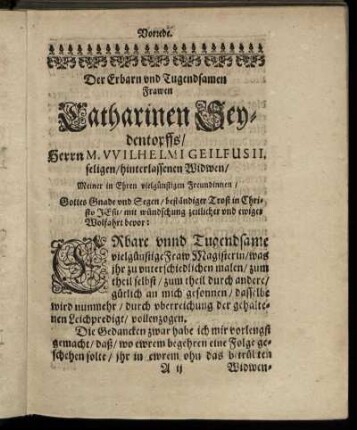 Vorrede.
Der Erbarn vnd Tugendsamen
Frawen
Catharinen Sey-
dentorffs/
Herrn M. VVILHELMI GEILFUSII,
seligen/ hinterlassenen Widwen/
Meiner in Ehren vielgünstigen Freundinnen/
Gottes Gnade vnd Segen/ beständiger Trost in Chri-
sto JEsu/ mit wündschung zeitlicher vnd ewiger
Wolfahrt bevor:
ERbare vnnd Tugendsame
vielgünstige Fraw Magisterin/ was
jhr zu vnterschiedlichen malen/ zum
theil selbst/ zum theil durch andere/
gütlich an mich gesonnen/ dasselbe
wird nunmehr/ durch vberreichung der gehalte-
nen Leichpredigt/ vollenzogen.
Die Gedancken zwar habe ich mir vorlengst
gemacht/ daß/ wo ewrem begehren eine Folge ge-
schehen solte/ jhr in ewrem ohn das betrübten
A ij Widwen-